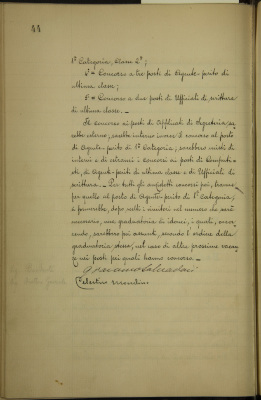 44
1ª Categoria, Classe 2ª;
4º = Concorso a tre posti di Agente-perito di
ultima classe;
5º = Concorso a due posti di Ufficiali di scrittura
di ultima classe. =
Il concorso ai posti di Ufficiali di Segreteria sa=
rebbe esterno; sarebbe interno invece il concorso al posto
di Agente-perito di 1ª Categoria; sarebbero misti di
interni e di esterni i concorsi ai posti di Computi=
sti, di Agenti-periti di ultima classe e di Ufficiali di
scrittura. = Per tutti gli anzidetti concorsi poi, meno
per quello al posto di Agente-perito di 1ª Categoria,
si formerebbe, dopo scelti i vincitori nel numero che sarà
necessario, una graduatoria di idonei, i quali, occor=
rendo, sarebbero poi assunti, secondo l'ordine della
graduatoria stessa, nel caso di altre prossime vacan=
ze nei posti pei quali hanno concorso. =
Salvadori
Celestino